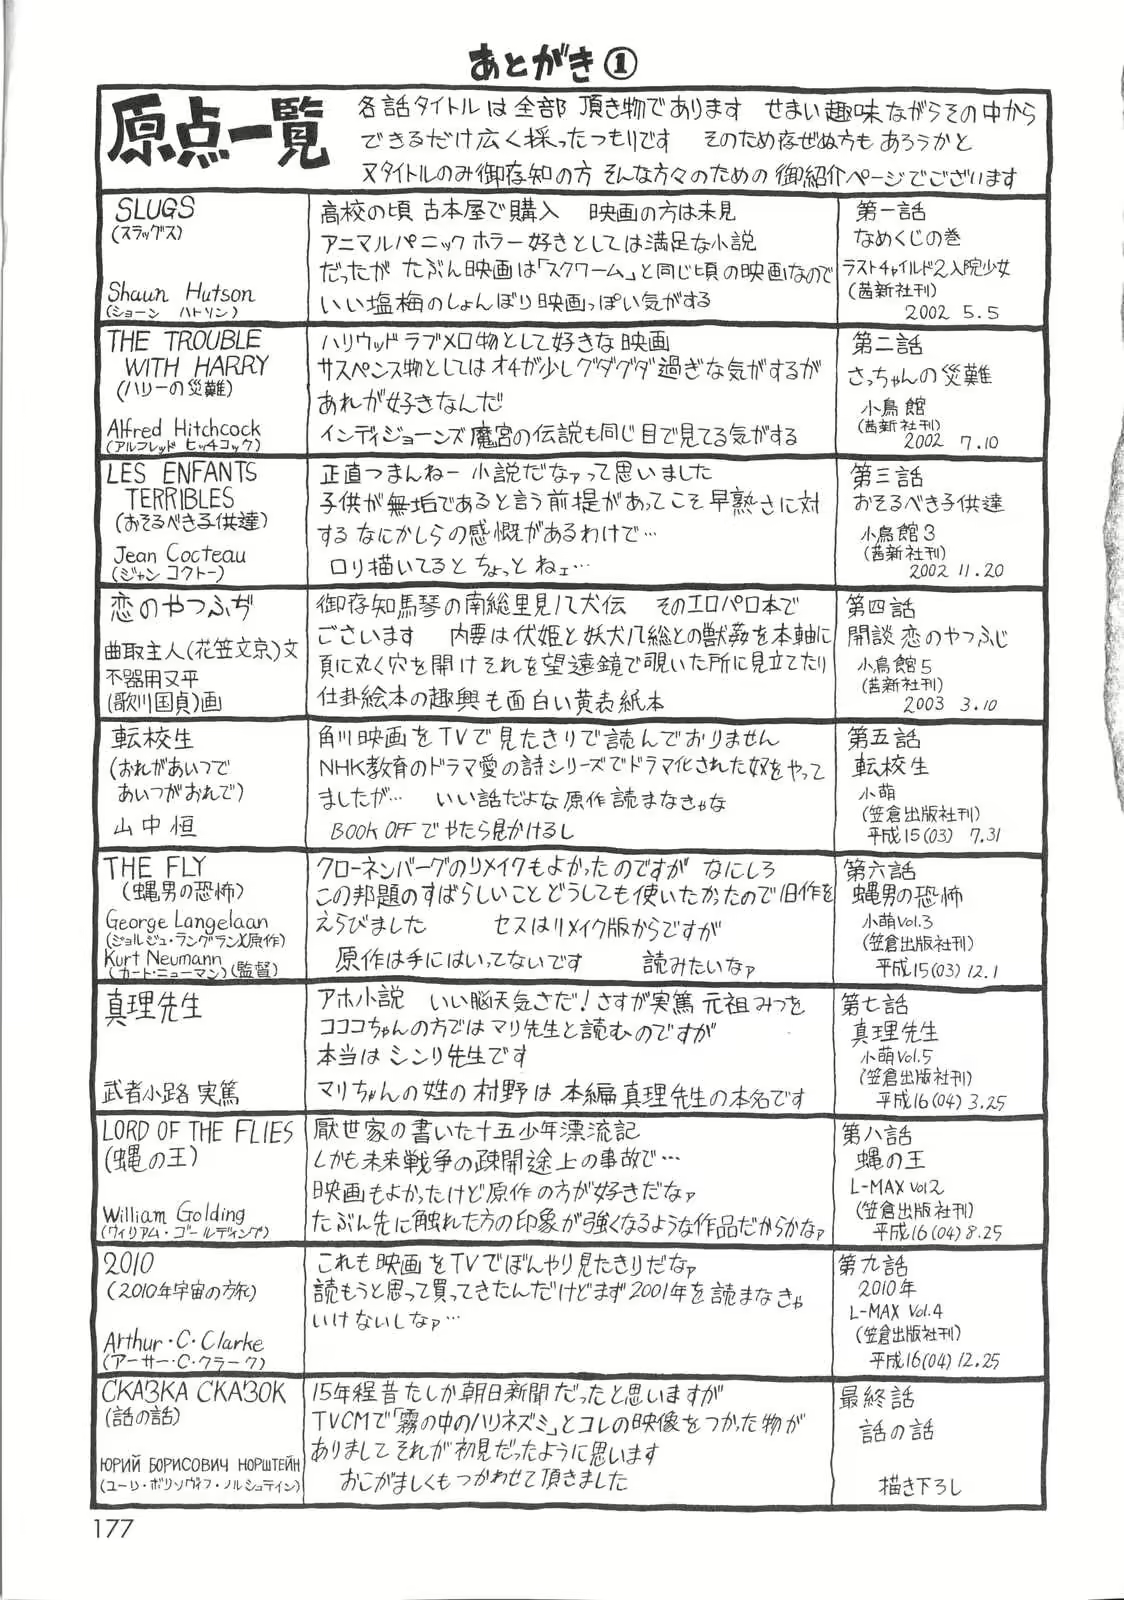 あとがき①
原点一覧
各話タイトルは全部 頂き物であります せまい趣味ながらその中から
できるだけ広く採ったつもりです そのため存ぜぬ方もあろうかと
又タイトルのみ御存知の方 そんな方々のための 御紹介ページでございます
SLUGS
(スラッグス)
Shaun Hutson
(ショーン ハトソン)
高校の頃 古本屋で購入 映画の方は未見
アニマルパニックホラー好きとしては満足な小説
だったが たぶん映画は「スクワーム」と同じ頃の映画なので
いい塩梅のしょんぼり映画っぽい気がする
第一話
なめくじの巻
ラストチャイルド2入院少女
(茜新社刊)
2002 5.5
THE TROUBLE
WITH HARRY
(ハリーの災難)
Alfred Hitchcock
(アルフレッド ヒッチコック)
ハリウッドラブメロ物として好きな映画
サスペンス物としてはオチが少しグダグダ過ぎな気がするが
あれが好きなんだ
インディジョーンズ魔宮の伝説も同じ目で見てる気がする
第二話
さっちゃんの災難
小鳥館
(茜新社刊)
2002 7.10
LES ENFANTS
TERRIBLES
(おそるべき子供達)
Jean Cocteau
(ジャン コクトー)
正直つまんねー小説だなァって思いました
子供が無垢であると言う前提があってこそ早熟さに対
するなにかしらの感慨があるわけで…
ロリ描いてるとちょっとねェ…
第三話
おそるべき子供達
小鳥館3
(茜新社刊)
2002 11.20
恋のやつふぢ
曲取主人(花笠文京)文
不器用又平
(歌川国貞)画
御存知馬琴の南総里見八犬伝 そのエロパロ本で
ございます 内要は伏姫と妖犬八総との獣姦を本軸に
頁に丸く穴を開けそれを望遠鏡で覗いた所に見立てたり
仕掛絵本の趣興も面白い黄表紙本
第四話
開談 恋のやつふじ
小鳥館5
(茜新社刊)
2003 3.10
転校生
(おれがあいつで
あいつがおれで)
山中恒
角川映画をTVで見たきりで読んでおりません
NHK教育のドラマ愛の詩シリーズでドラマ化された奴をやって
ましたが… いい話だよな原作読まなきゃな
BOOK OFFでやたら見かけるし
第五話
転校生
小萌
(笠倉出版社刊)
平成15(03) 7.31
THE FLY
(蝿男の恐怖)
George Langelaan
(ジョルジュ・ラングラン)(原作)
Kurt Neumann
(カート・ニューマン)(監督)
クローネンバーグのリメイクもよかったのですが なにしろ
この邦題のすばらしいことどうしても使いたかったので旧作を
えらびました セスはリメイク版からですが
原作は手にはいってないです 読みたいなァ
第六話
蝿男の恐怖
小萌Vol.3
(笠倉出版社刊)
平成15(03) 12.1
真理先生
武者小路実篤
アホ小説 いい脳天気さだ!さすが実篤 元祖みつを
コココちゃんの方ではマリ先生と読むのですが
本当はシンリ先生です
マリちゃんの姓の村野は本編真理先生の本名です
第七話
真理先生
小萌Vol.5
(笠倉出版社刊)
平成16(04) 3.25
LORD OF THE FLIES
(蝿の王)
William Golding
(ウィリアム・ゴールディング)
厭世家の書いた十五少年漂流記
しかも未来戦争の疎開途上の事故で…
映画もよかったけど原作の方が好きだなァ
たぶん先に触れた方の印象が強くなるような作品だからかなァ
第八話
蝿の王
L-MAX Vol2
(笠倉出版社刊)
平成16(04) 8.25
2010
(2010年宇宙の旅)
Arthur・C・Clarke
(アーサー・C・クラーク)
これも映画をTVでぼんやり見たきりだなァ
読もうと思って買ってきたんだけどまず2001年を読まなきゃ
いけないしなァ…
第九話
2010年
L-MAX Vol.4
(笠倉出版社刊)
平成16(04) 12.25
СКАЗКА СКАЗОК
(話の話)
ЮРИЙ БОРИСОВИЧ НОРШТЕЙН
(ユーリ・ボリソヴィフ・ノルシュテイン)
15年程昔たしか朝日新聞だったと思いますが
TVCMで「霧の中のハリネズミ」とコレの映像をつかった物が
ありましてそれが初見だったように思います
おこがましくもつかわせて頂きました
最終話
話の話
描き下ろし
177